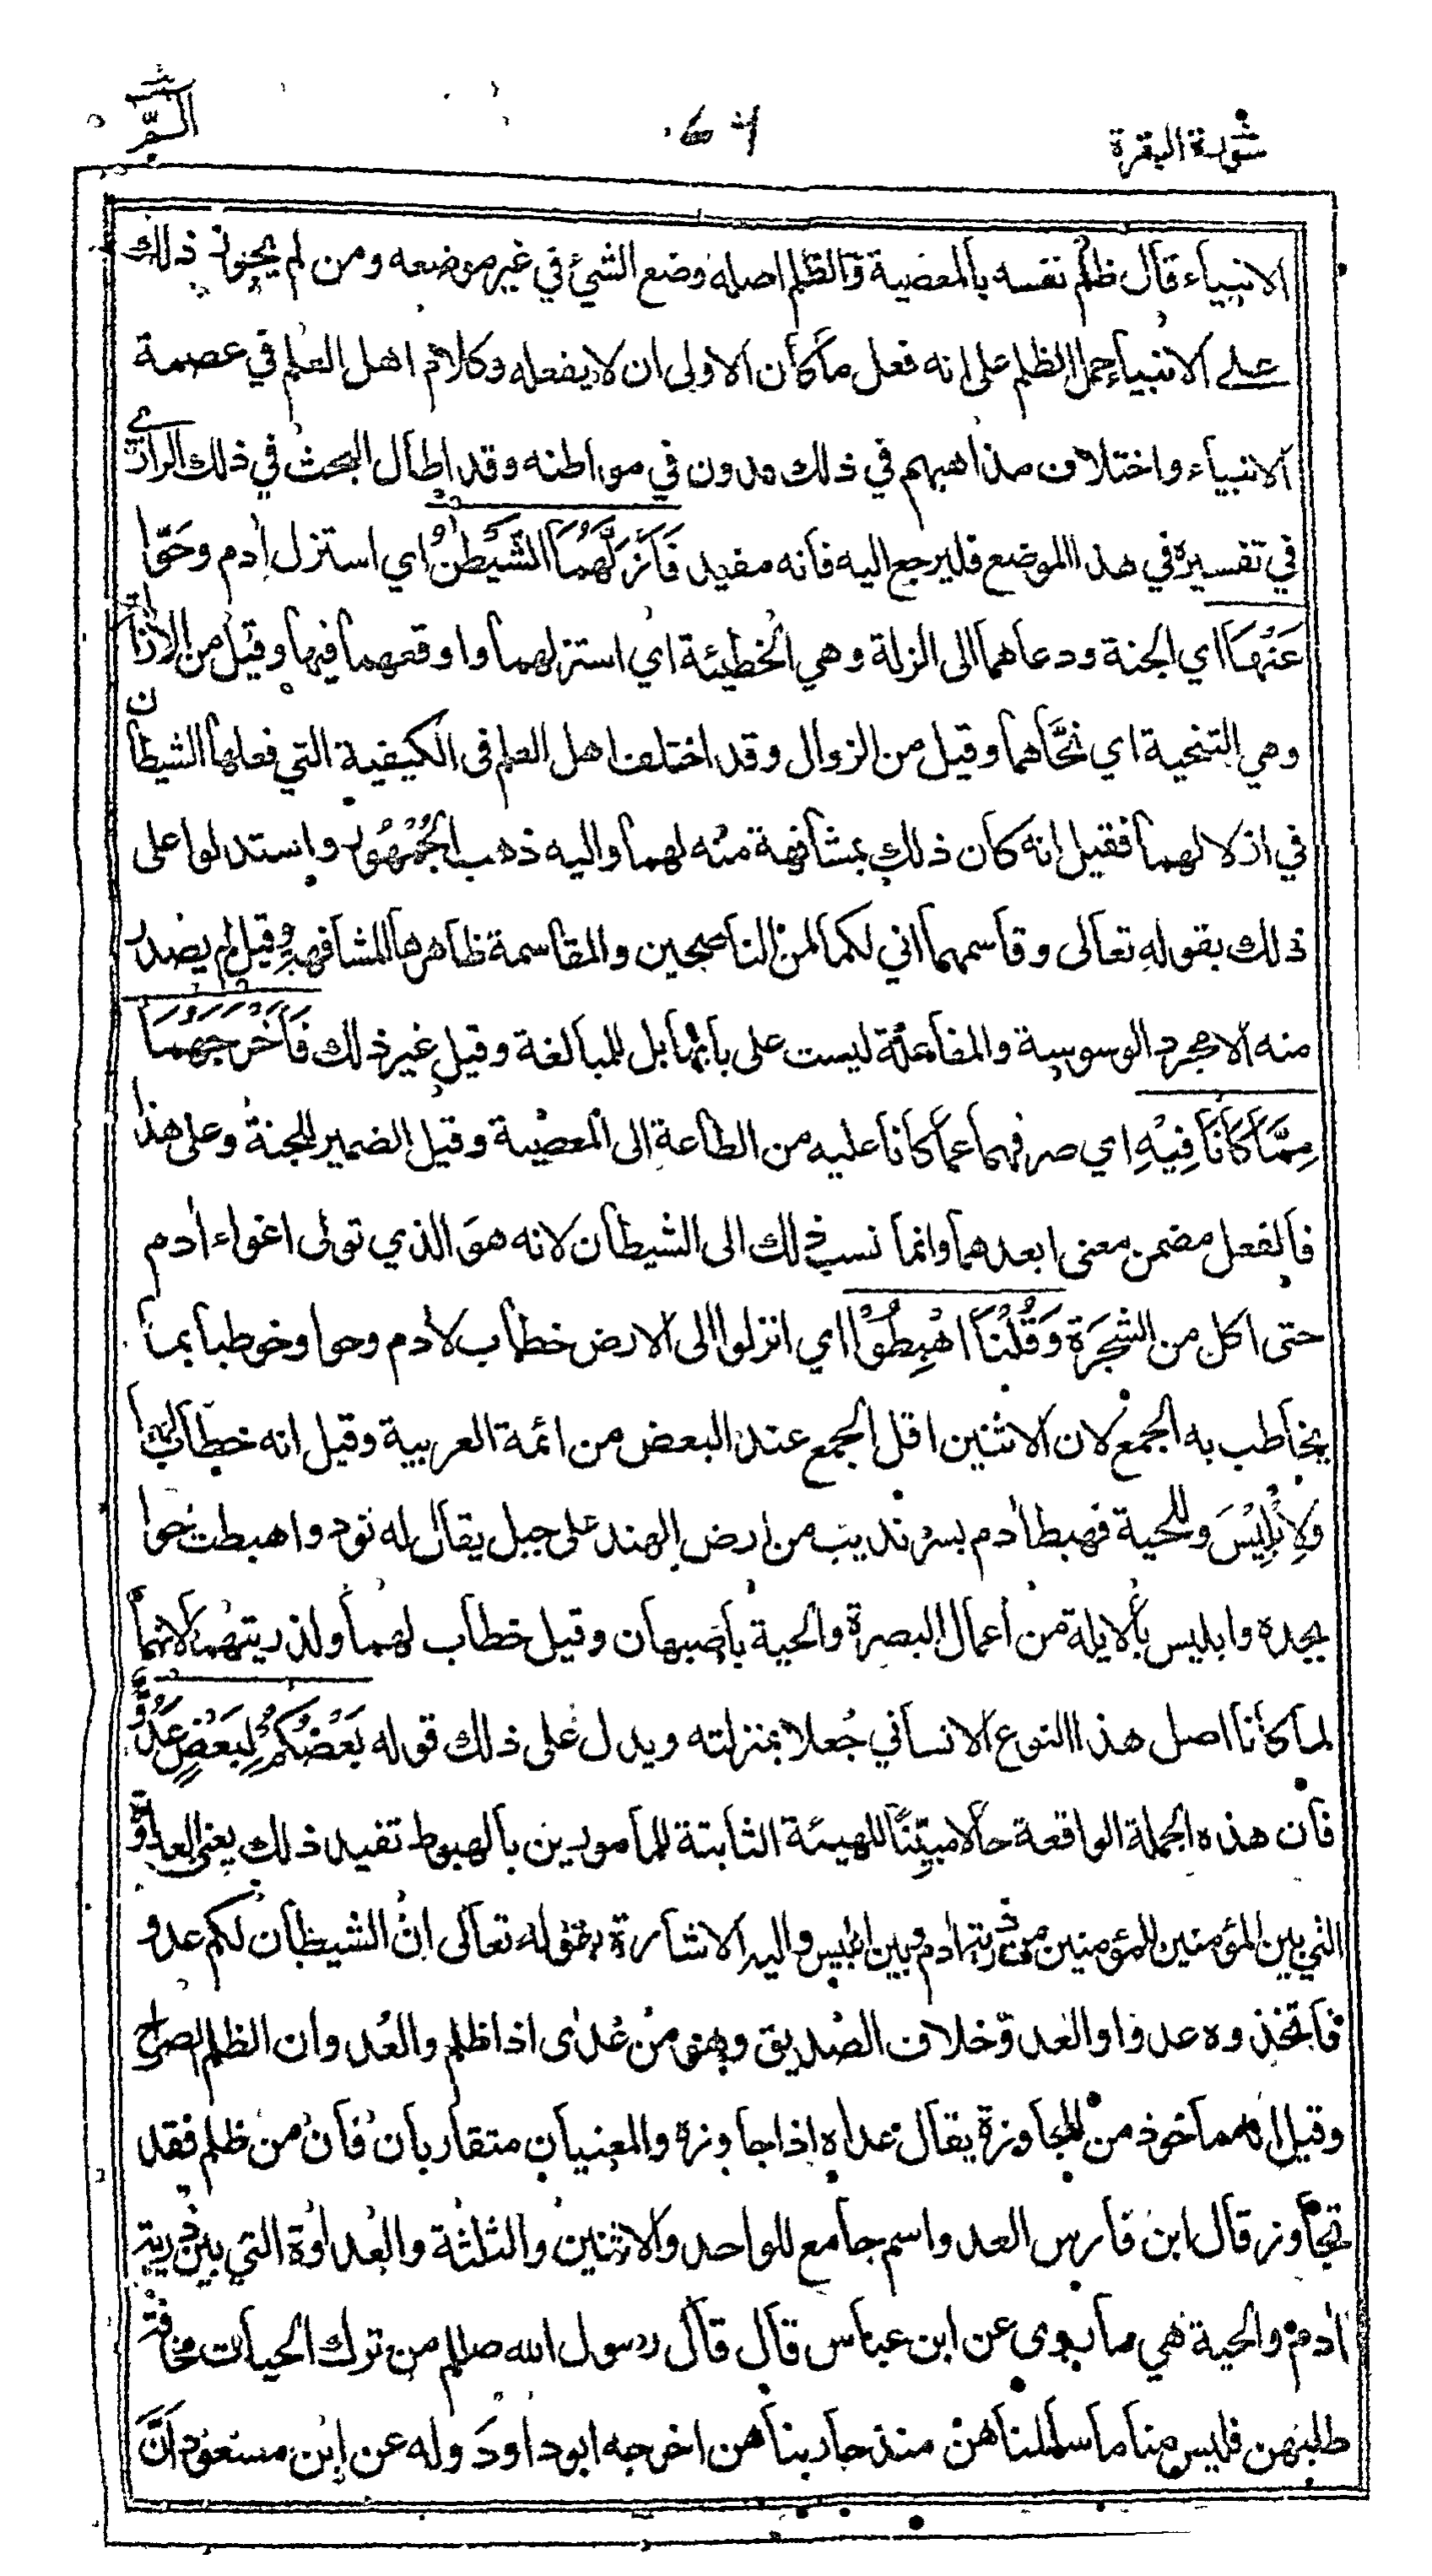 سورة البقرة
٦٧
الم
الانبياء قال ظلم نفسه بالمعصية والظلم اصله وضع الشيء في غير موضعه ومن لم يجوز ذلك
على الانبياء حمل الظلم على انه فعل ما كان الاولى ان لا يفعله وكلام اهل العلم في عصمة
الانبياء واختلاف مذاهبهم في ذلك مدون في مواطنه وقد اطال البحث في ذلك الرازي
في تفسيره في هذا الموضع فليرجع اليه فانه مفيد فَاَزَلَّهُمَا الشَّيْطٰنُ اي استزل اٰدم وحوّا
عَنْهَا اي الجنة ودعاهما الى الزلة وهي الخطيئة اي استزلهما واوقعهما فيها وقيل من الازالة
وهي التنحية اي نحّاهما وقيل من الزوال وقد اختلف اهل العلم في الكيفية التي فعلها الشيطان
في ازلالهما فقيل انه كان ذلك بمشافهة منه لهما واليه ذهب الجُمْهُور واستدلوا على
ذلك بقوله تعالى وقاسمهما اني لكما لمن الناصحين والمقاسمة ظاهرها المشافهة وقيل لم يصدر
منه الا مجرد الوسوسة والمفاعلة ليست على بابها بل للمبالغة وقيل غير ذلك فَاَخْرَجَهُمَا
مِمَّا كَانَا فِيْهِ اي صرفهما عما كانا عليه من الطاعة الى المعصية وقيل الضمير للجنة وعلى هذا
فالفعل مضمن معنى ابعدهما وانما نسب ذلك الى الشيطان لانه هو الذي تولى اغواء اٰدم
حتى اكل من الشجرة وَقُلْنَا اهْبِطُوْا اي انزلوا الى الارض خطاب لاٰدم وحوا وخوطبا بما
يخاطب به الجمع لان الاثنين اقل الجمع عند البعض من ائمة العربية وقيل انه خطاب لهما
ولِاِبْلِيْسَ وللحية فهبط اٰدم بسرنديب من ارض الهند على جبل يقال له نود واهبطت حوا
بجدة وابليس بالايلة من اعمال البصرة والحية باصبهان وقيل خطاب لهما ولذريتهما لانهما
لما كانا اصل هذا النوع الانساني جُعلا بمنزلته ويدل على ذلك قوله بَعْضُكُمْ لِبَعْضٍ عَدُوٌّ
فان هذه الجملة الواقعة حالا مبيّنا للهيئة الثابتة للمامورين بالهبوط تفيد ذلك يعني العداوة
التي بين المؤمنين للمؤمنين من ذرية اٰدم وبين ابليس واليه الاشارة بقوله تعالى انّ الشيطان لكم عدو
فاتخذوه عدوا والعدوّ خلاف الصديق وهو من عُدٰى اذا ظلم والعُدوان الظلم الصراح
وقيل انه ماخوذ من المجاوزة يقال عداه اذا جاوزه والمعنيان متقاربان فان من ظلم فقد
تجاوز قال ابن فارس العدو اسم جامع للواحد والاثنين والثلثة والعداوة التي بين ذرية
اٰدم والحية هي ما روى عن ابن عباس قال قال رسول الله صللم من ترك الحيات مخافة
طلبهن فليس منا ما سالمناهن منذ حاربناهن اخرجه ابوداود وله عن ابن مسعود انّ